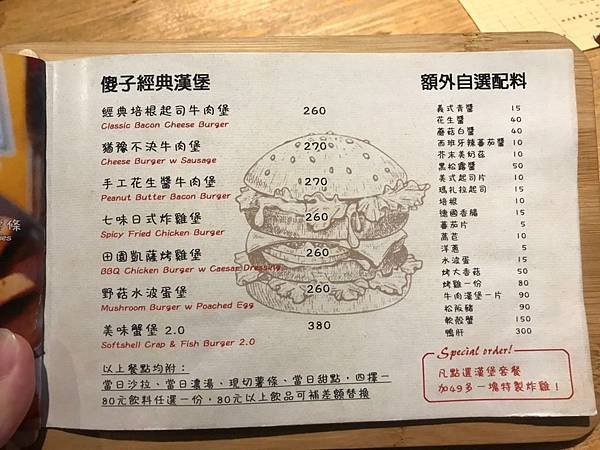 傻子經典漢堡
經典培根起司牛肉堡 260
Classic Bacon Cheese Burger
猶豫不決牛肉堡 270
Cheese Burger w Sausage
手工花生醬牛肉堡 270
Peanut Butter Bacon Burger
七味日式炸雞堡 260
Spicy Fried Chicken Burger
田園凱薩烤雞堡 260
BBQ Chicken Burger w Caesar Dressing
野菇水波蛋堡 260
Mushroom Burger w Poached Egg
美味蟹堡 2.0 380
Softshell Crap & Fish Burger 2.0
以上餐點均附：
當日沙拉、當日濃湯、現切薯條、當日甜點，四擇一
80元飲料任選一份，80元以上飲品可補差額替換
額外自選配料
義式青醬 15
花生醬 40
蘑菇白醬 40
西班牙辣蕃茄醬 10
芥末美奶茲 10
黑松露醬 50
美式起司片 10
瑪扎拉起司 15
培根 10
德國香腸 15
蕃茄片 5
萵苣 10
洋蔥 5
水波蛋 15
烤大香菇 50
烤雞一份 80
牛肉漢堡一片 90
松阪豬 90
軟殼蟹 150
鴨肝 300
Special order!
凡點選漢堡套餐
加49多一塊特製炸雞！
條